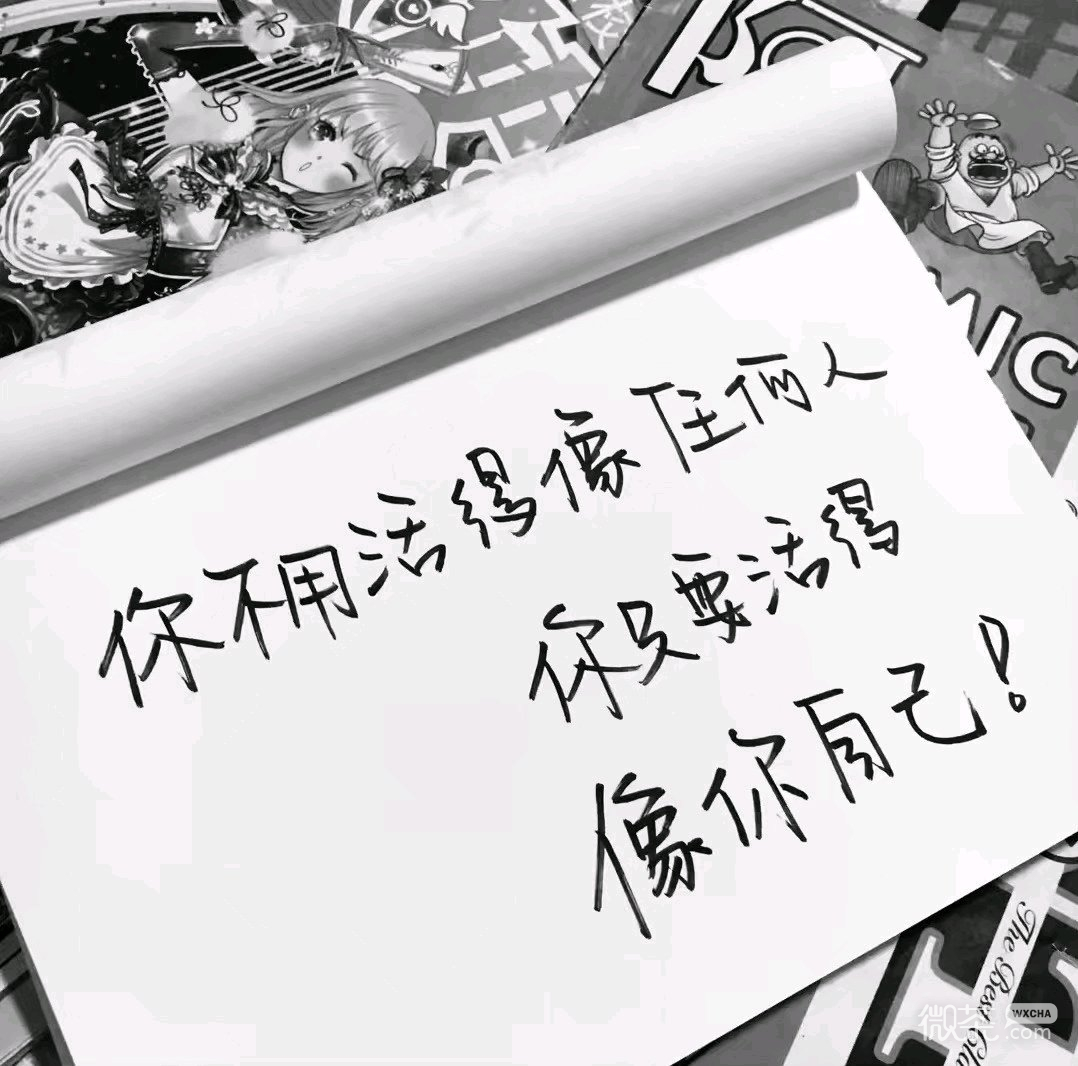 你不用活得像任何人
你只要活得
像你自己！
The Best Cla
微茶
WXCHA
.com